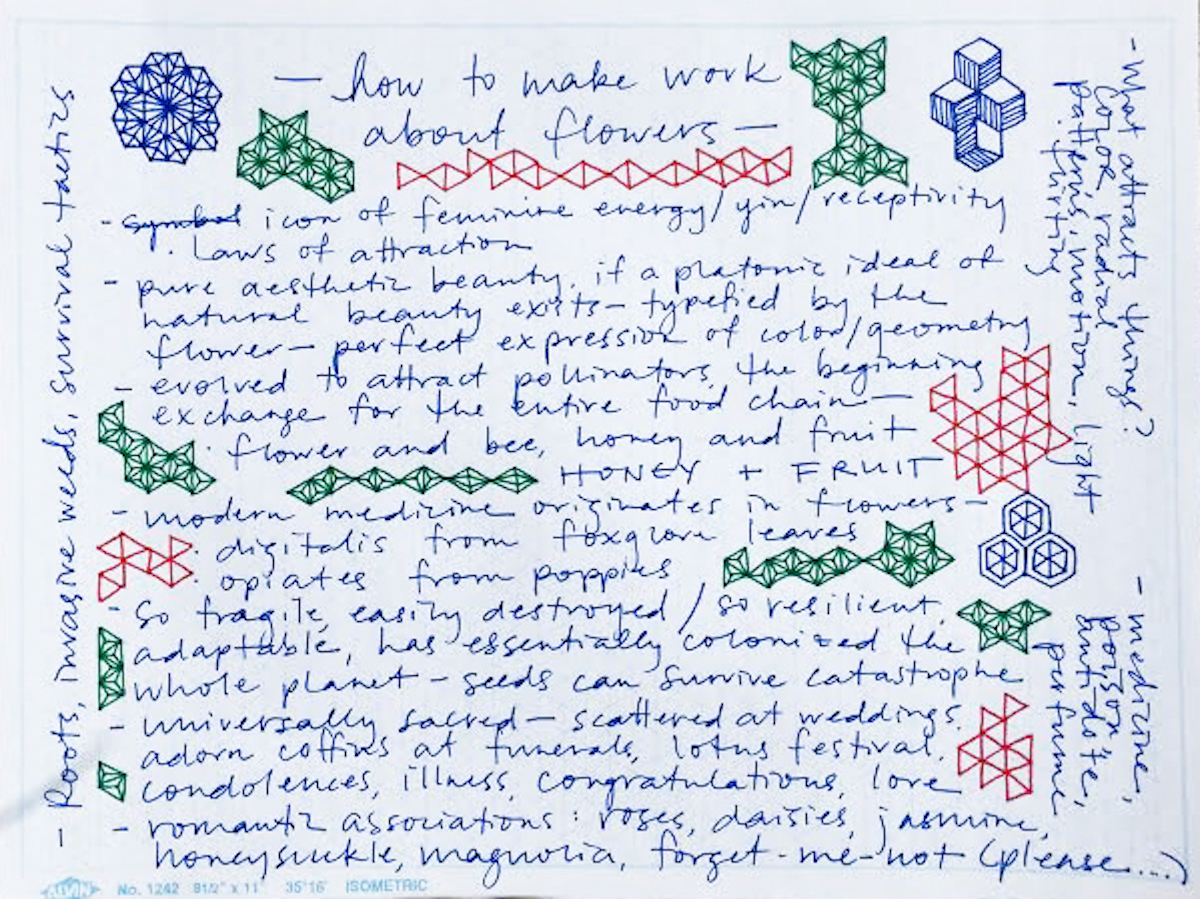 — how to make work
about flowers —
- symbol icon of feminine energy/yin/receptivity
· Laws of attraction
- pure aesthetic beauty, if a platonic ideal of
natural beauty exists — typefied by the
flower — perfect expression of color/geometry
- evolved to attract pollinators, the beginning
exchange for the entire food chain —
· flower and bee, honey and fruit
HONEY + FRUIT
- modern medicine originates in flowers —
· digitalis from foxglove leaves
· opiates from poppies
- so fragile, easily destroyed / so resilient,
adaptable, has essentially colonized the
whole planet - seeds can survive catastrophe
- universally sacred — scattered at weddings,
adorn coffins at funerals, lotus festival,
condolences, illness, congratulations, love
- romantic associations: roses, daisies, jasmine,
honeysuckle, magnolia, forget-me-not (please....)
- Roots, invasive weeds, survival tactics
- What attracts things?
color, radial
patterns, motion, light
flirting
- medicine,
poison,
antidote,
perfume
ALVIN No. 1242 8 1/2" x 11" 35°16' ISOMETRIC